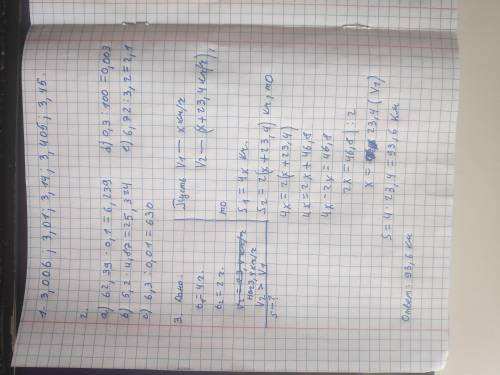 1. 3,006; 3,01; 3,14; 3,405; 3,45
2.
a) 62,39 · 0,1 = 6,239
b) 6,2 · 4,17 = 25,324
c) 6,3 : 0,01 = 630
d) 0,3 : 100 = 0,003
e) 6,72 : 3,2 = 2,1
3. Дано:
t₁ = 4 ч.
t₂ = 2 ч.
V₂ > V₁
S - ?
Пусть V₁ — x км/ч
V₂ — (x + 23,4 км/ч),
то
S₁ = 4x км.
S₂ = 2(x + 23,4) км, то
4x = 2(x + 23,4)
4x = 2x + 46,8
4x - 2x = 46,8
2x = 46,8 | : 2
x = 23,4 (V₁)
S = 4 · 23,4 = 93,6 км
Ответ: 93,6 км